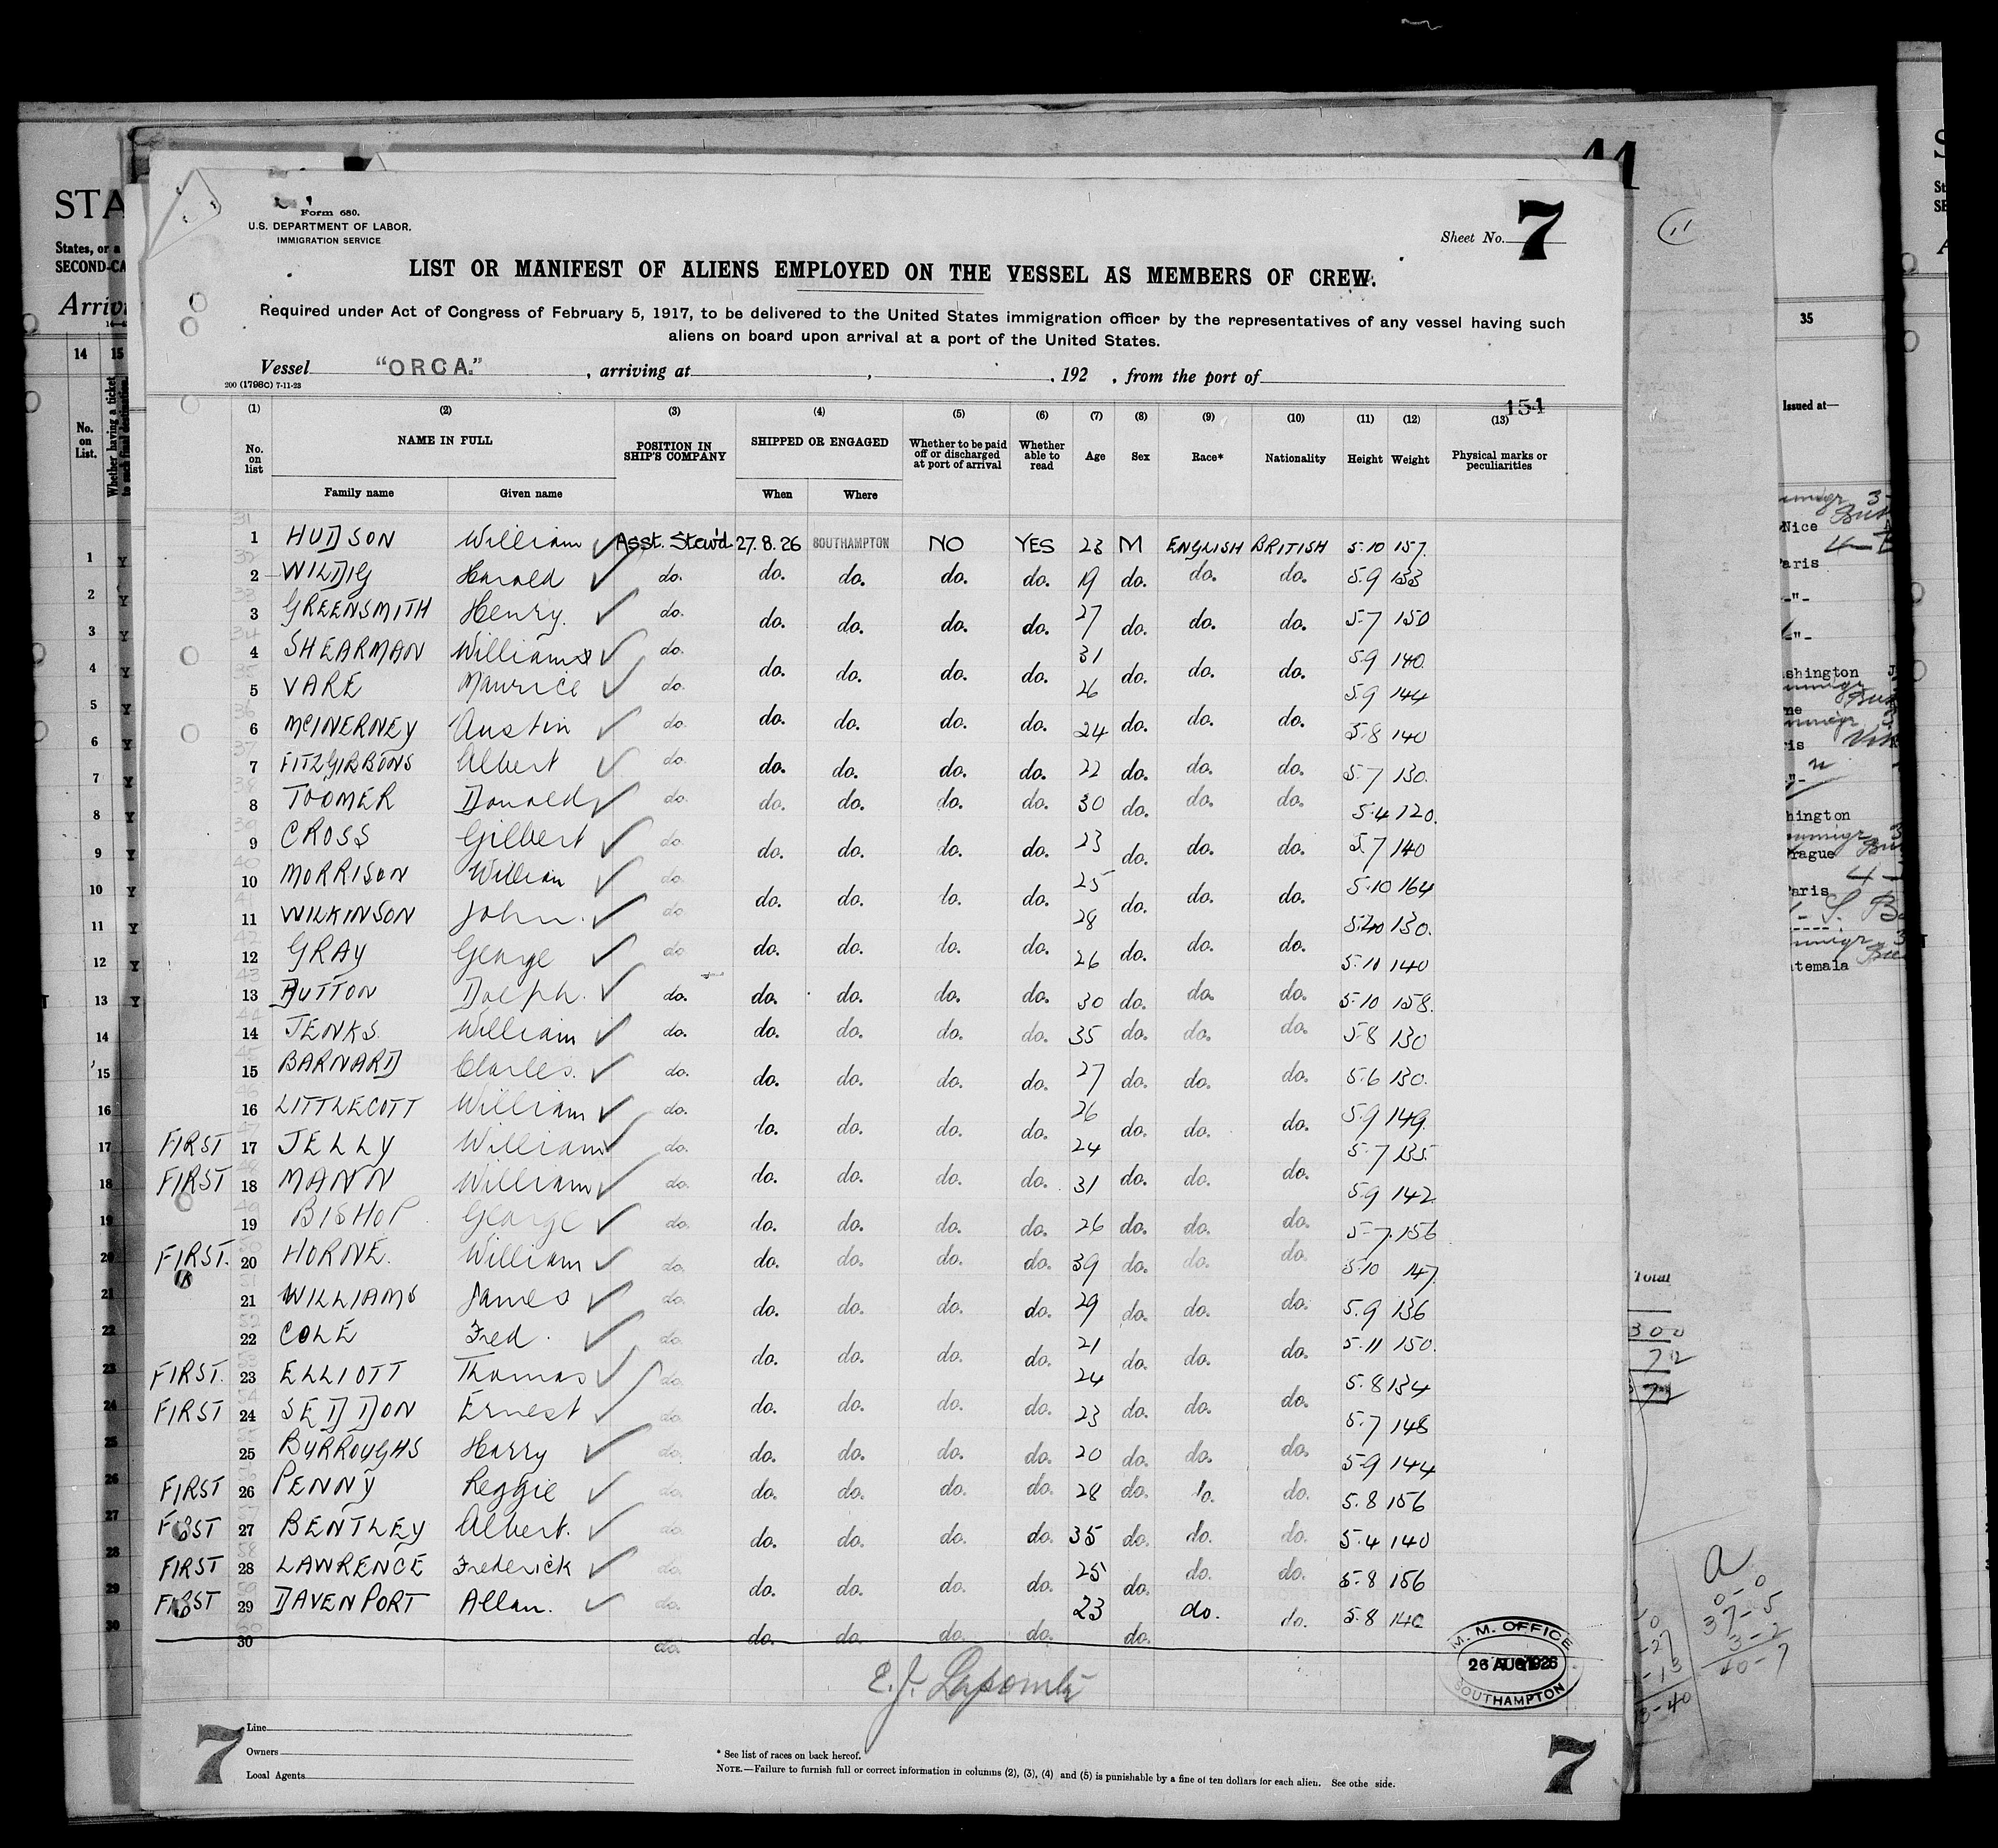 44
Form 680.
U.S. DEPARTMENT OF LABOR.
IMMIGRATION SERVICE
Sheet No. 7
LIST OR MANIFEST OF ALIENS EMPLOYED ON THE VESSEL AS MEMBERS OF CREW.
Required under Act of Congress of February 5, 1917, to be delivered to the United States immigration officer by the representatives of any vessel having such
aliens on board upon arrival at a port of the United States.
Vessel "ORCA." , arriving at , , 192 , from the port of
200 (1798C) 7-11-23
154
(1) (2) (3) (4) (5) (6) (7) (8) (9) (10) (11) (12) (13)
No. on list NAME IN FULL POSITION IN SHIP'S COMPANY SHIPPED OR ENGAGED Whether to be paid off or discharged at port of arrival Whether able to read Age Sex Race* Nationality Height Weight Physical marks or peculiarities
Family name Given name When Where
1 HUDSON William Asst. Stew'd 27.8.26 SOUTHAMPTON NO YES 23 M ENGLISH BRITISH 5.10 157
2 WILDIG Harold do. do. do. do. do. 19 do. do. do. 5.9 133
3 GREENSMITH Henry. do. do. do. do. do. 27 do. do. do. 5.7 150
4 SHEARMAN William do. do. do. do. do. 31 do. do. do. 5.9 140
5 VARE Maurice do. 26 5.9 144
6 MCINERNEY Austin do. do. do. do. do. 24 do. do. do. 5.8 140
7 FITZGIBBONS Albert do. do. do. do. do. 22 do. do. do. 5.7 130.
8 TOOMER Donald do. do. do. do. do. 30 do. do. do. 5.4 120.
9 CROSS Gilbert do. do. do. do. do. 23 do. do. do. 5.7 140
10 MORRISON William do. do. do. do. do. 25 do. do. do. 5.10 164
11 WILKINSON John. do. 28 130.
12 GRAY George do. do. do. do. do. 26 do. do. do. 5.10 140
13 DUTTON Dolph. do. do. do. do. do. 30 do. do. do. 5.10 158.
14 JENKS. William do. do. do. do. do. 35 do. do. do. 5.8 130
15 BARNARD Charles. do. do. do. do. do. 27 do. do. do. 5.6 130.
16 LITTLECOTT William do. do. do. do. do. 26 do. do. do. 5.9 149.
FIRST 17 JELLY William do. 24 5.7 135.
FIRST 18 MANN William do. do. do. do. do. 31 do. do. do. 5.9 142
19 BISHOP George do. do. do. do. do. 26 do. do. do. 5.7. 156
FIRST. 20 HORNE. William do. do. do. do. do. 39 do. do. do. 5.10 147
21 WILLIAMS James do. do. do. do. do. 29 do. do. do. 5.9 136
22 COLE Fred. do. do. do. do. do. 21 do. do. do. 5.11 150.
FIRST. 23 ELLIOTT Thomas do. 24 5.8 134
FIRST 24 SEDDON Ernest do. do. do. do. do. 23 do. do. do. 5.7 148
25 BURROUGHS Harry do. do. do. do. do. 20 do. do. do. 5.9 144
FIRST 26 PENNY Reggie do. do. do. do. do. 28 do. do. do. 5.8 156
FIRST 27 BENTLEY Albert. do. do. do. do. do. 35 do. do. do. 5.4 140
FIRST 28 LAWRENCE Frederick do. do. do. do. do. 25 do. do. do. 5.8 156
FIRST 29 DAVENPORT Allan. do. 23 do. do. 5.8 140
30 do. do. do. do. do. do.
M. M. OFFICE
26 AUG 1926
SOUTHAMPTON
7 Line
Owners
Local Agents
* See list of races on back hereof.
NOTE.—Failure to furnish full or correct information in columns (2), (3), (4) and (5) is punishable by a fine of ten dollars for each alien. See othe side.
7
STA
States, or a
SECOND-CA
Arriv
14 15
No. on List.
Whether having a ticket to such final destination
35
Issued at—
Nice
Paris
shington
Prague
Paris
temala
Total
300
72